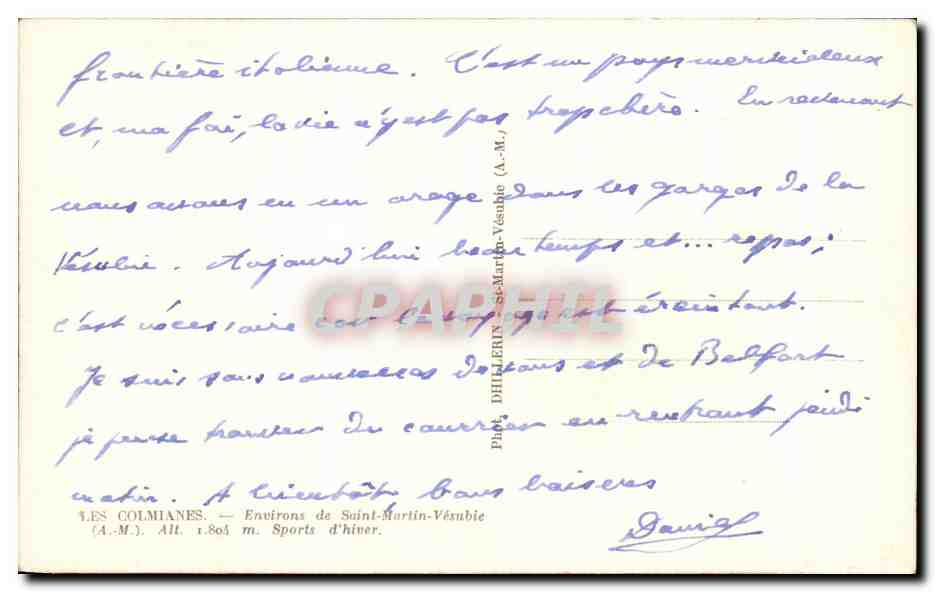 frontière italienne. C'est un pays merveilleux
et, ma foi, la vie n'y est pas trop chère. En redescendant
nous avons eu un orage dans les gorges de la
Vésubie. Aujourd'hui beau temps et... repos;
c'est nécessaire car le voyage est éreintant.
Je suis sans nouvelles de vous et de Belfort
je pense trouver du courrier en rentrant jeudi
matin. A bientôt, bons baisers
Daniel
LES COLMIANES. — Environs de Saint-Martin-Vésubie
(A.-M.). Alt. 1.804 m. Sports d'hiver.
Phot. DHILLERIN - St-Martin-Vésubie (A.-M.)
CPAPHIL